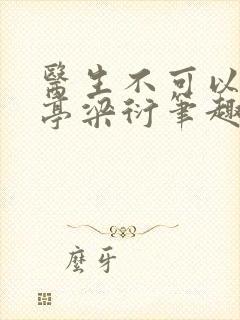 醫生不可以
亭梁衍筆趣
麼牙